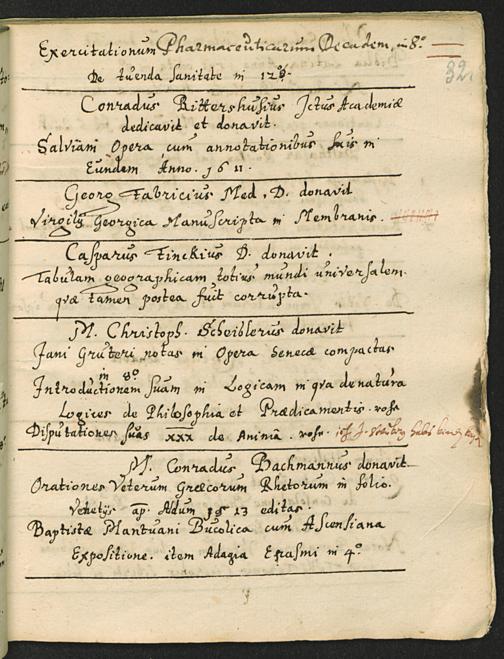 Exercitationum Pharmaceuticarum Decadem, in 8º
32.
De tuenda sanitate in 12º.
Conradus Rittershusius Jctus Academiæ
dedicavit et donavit.
Salviani Opera cum annotationibus suis in
Eundem Anno. 1611.
Georg Fabricius Med. D. donavit
Virgilij Georgica Manuscripta in Membranis.
Casparus Finckius D. donavit.
Tabulam geographicam totius mundi universalem.
qvæ tamen postea fuit corrupta.
M. Christoph. Scheiblerus donavit
Jani Gruteri notas in Opera Senecæ compactas
in 8º
Introductionem suam in Logicam in qva de natura
Logices de Philosophia et Prædicamentis.
Disputationes suas xxx de Animâ.
M. Conradus Bachmannus donavit
Orationes Veterum Græcorum Rhetorum in folio.
Venetijs ap. Aldum 1513 editas.
Baptistæ Mantuani Bucolica cum Ascensiana
Expositione. item Adagia Erasmi in 4º.